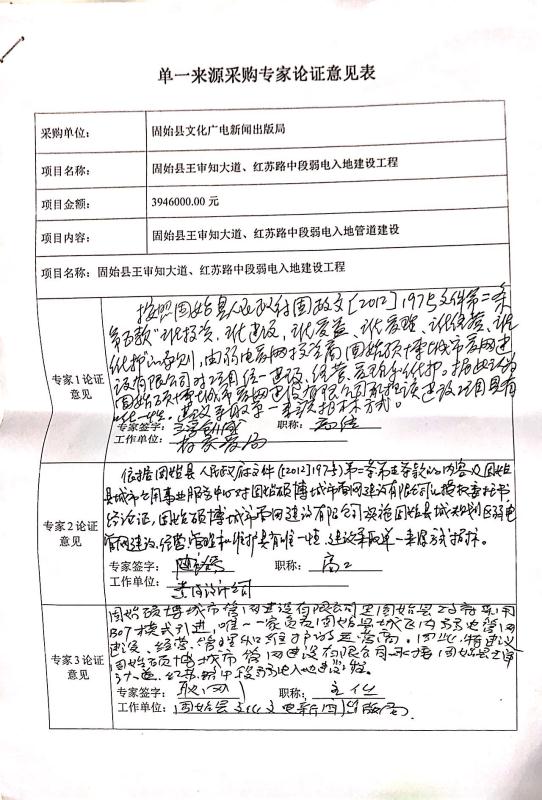 单一来源采购专家论证意见表
采购单位： 固始县文化广电新闻出版局
项目名称： 固始县王审知大道、红苏路中段弱电入地建设工程
项目金额： 3946000.00 元
项目内容： 固始县王审知大道、红苏路中段弱电入地管道建设
项目名称：固始县王审知大道、红苏路中段弱电入地建设工程
专家 1 论证
意见
按照固始县人民政府固政文[2012]197号文件第二条
由弱电管网投资商固始硕博城市管网建
设有限公司对项目统一建设、经营、管理和维护。
固始硕博城市管网建设有限公司
唯一性。建议采取单一来源招标方式。
专家签字： 职称： 高经
工作单位：
专家 2 论证
意见
依据固始县人民政府文件([2012]197号)第二条第五款的内容及固始
县城市公用事业服务中心对固始硕博城市管网建设有限公司的授权委托书
经论证，固始硕博城市管网建设有限公司实施固始县城规划区弱电
管网建设、经营、管理和维护具有唯一性，建议采取单一来源方式招标。
专家签字： 职称： 高工
工作单位：
专家 3 论证
意见
固始硕博城市管网建设有限公司是固始县
BOT模式引进，唯一一家负责固始县城区内弱电管网
建设、经营、管理和维护的运营商。因此，特建议
固始硕博城市管网建设有限公司承接固始县王审
知大道、红苏路中段弱电入地建设工程。
专家签字： 职称： 主任
工作单位：固始县文化广电新闻出版局